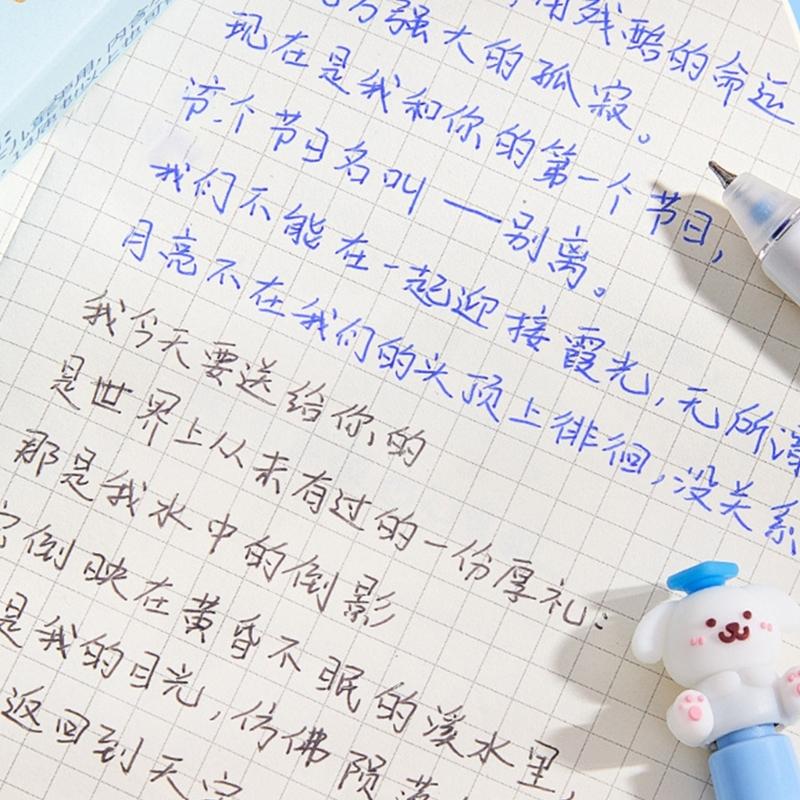 用残酷的命运
为强大的孤寂。
现在是我和你的第一个节日,
这个节日名叫——别离。
我们不能在一起迎接霞光,无所谓
月亮不在我们的头顶上徘徊,没关系
我今天要送给你的
是世界上从未有过的一份厚礼:
那是我水中的倒影
它倒映在黄昏不眠的溪水里,
是我的目光,仿佛陨落
返回到天空